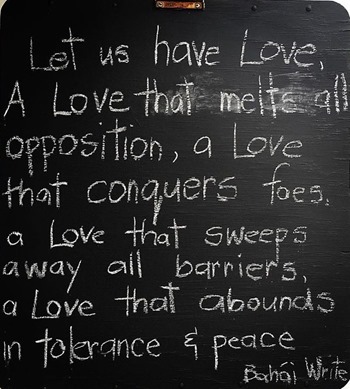 Let us have Love,
A Love that melts all
opposition, a Love
that conquers foes,
a Love that sweeps
away all barriers,
a Love that abounds
in tolerance & peace
Bahái Write